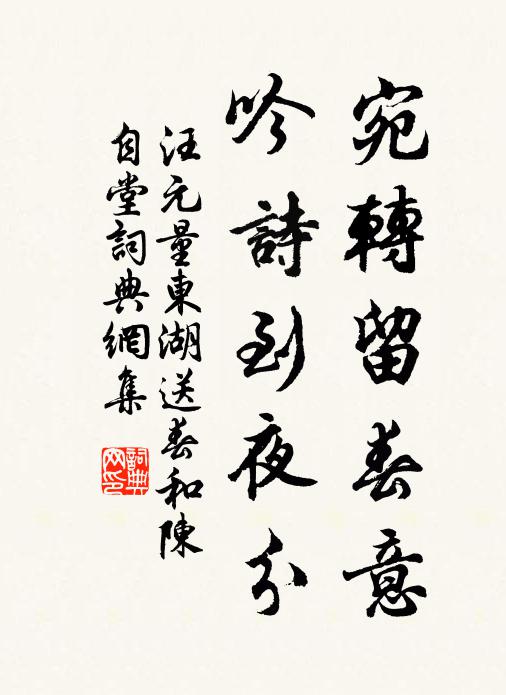 宛轉留春意
吟詩到夜分
汪元量東湖送春和陳
自堂詞典網集
詞典
网印